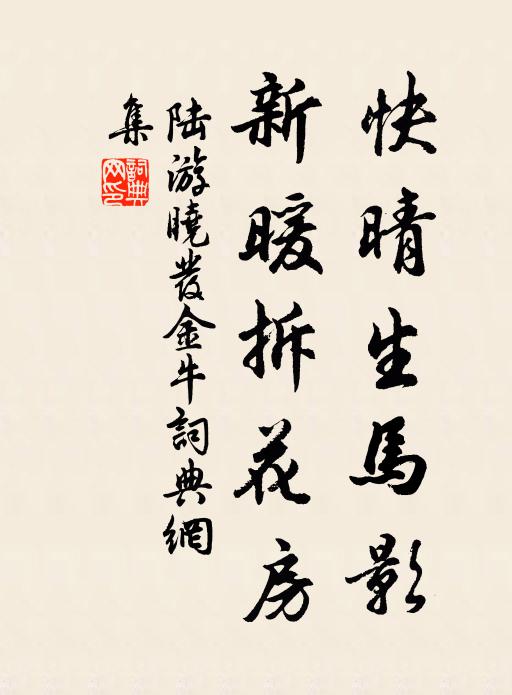 快晴生馬影
新暖拆花房
陆游曉發金牛詞典網
集
詞典網印